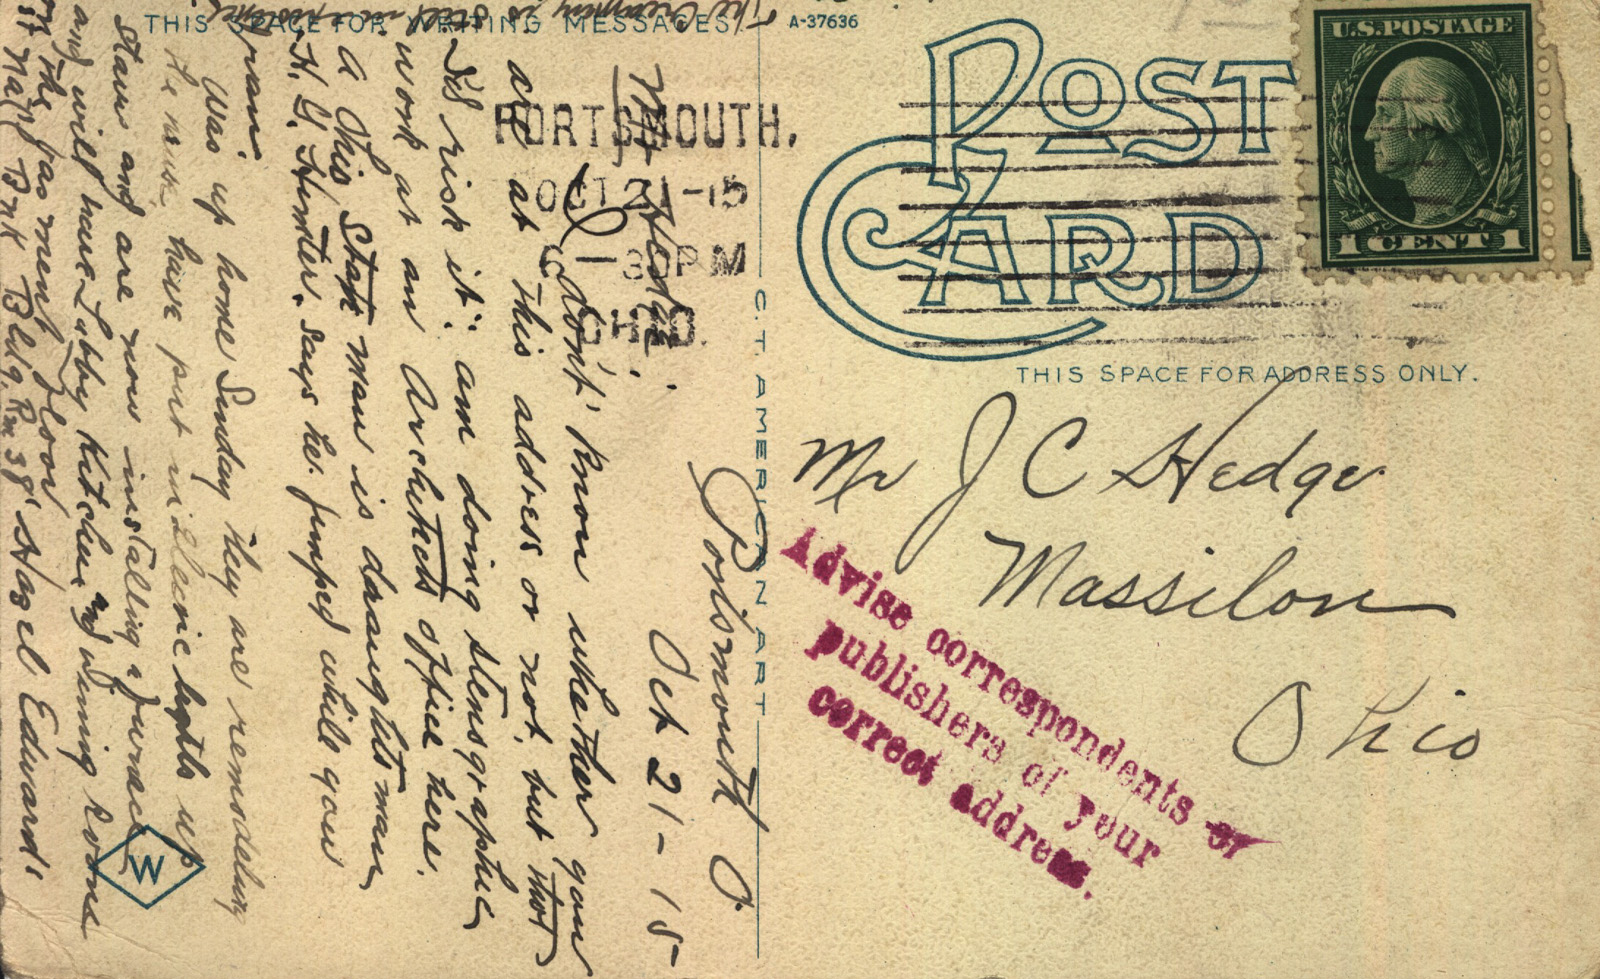 THIS SPACE FOR WRITING MESSAGES.
A-37636
POST CARD
U.S. POSTAGE
1 CENT 1
PORTSMOUTH,
OCT 21-15
-30 P M
OHIO.
THIS SPACE FOR ADDRESS ONLY.
C. T. AMERICAN ART
Mr J C Hedge
Massilon
Ohio
Advise correspondents or
publishers of your
correct address.
Portsmouth O.
Oct 21-15-
Mr Hedge:
I don't know whether you
are at this adress or not, but that
I'd risk it. am doing stenographic
work at an Archetects office here.
a Ohio State man is draughtsman
H. G. Hunter. says he jumped while you
ran.
Was up home Sunday they are remodeling
have put in electric lights up
stairs and are now installing a furnace
and will have Lobby Kitchen and Dining Rooms
on the basment floor
1st Natl Bnk Bldg. Rm 38 Hazel Edwards
W